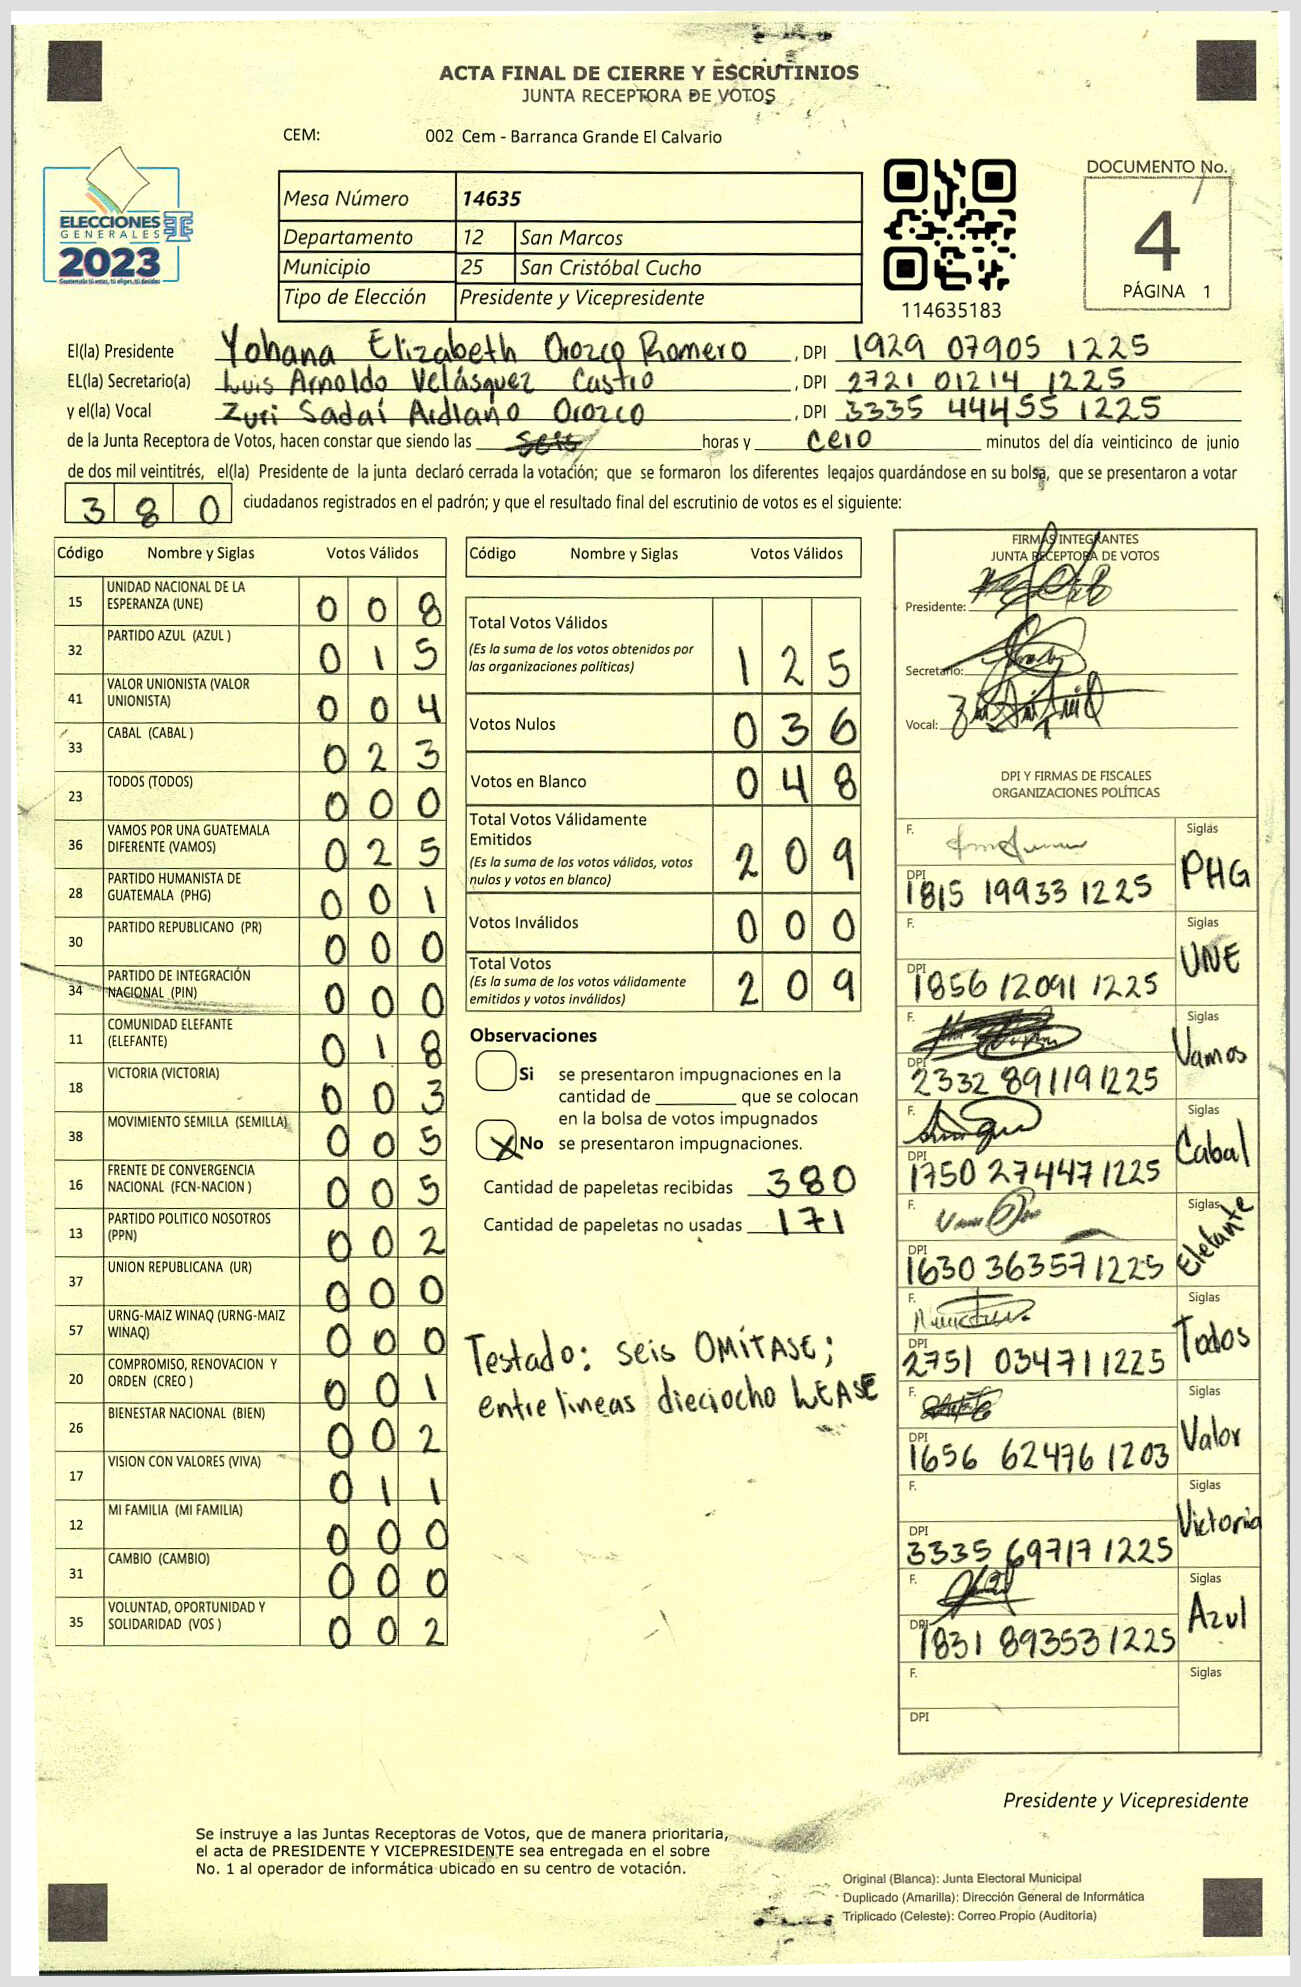 ACTA FINAL DE CIERRE Y ESCRUTINIOS
JUNTA RECEPTORA DE VOTOS
CEM: 002 Cem - Barranca Grande El Calvario
ELECCIONES
GENERALES
2023
Mesa Número 14635
Departamento 12 San Marcos
Municipio 25 San Cristóbal Cucho
Tipo de Elección Presidente y Vicepresidente
114635183
DOCUMENTO No.
4
PÁGINA 1
El(la) Presidente Yohana Elizabeth Orozco Romero , DPI 1929 07905 1225
EL(la) Secretario(a) Luis Arnoldo Velásquez Castro , DPI 2721 01214 1225
y el(la) Vocal Zuri Sadaí Ardiano Orozco , DPI 3335 44455 1225
de la Junta Receptora de Votos, hacen constar que siendo las seis horas y cero minutos del día veinticinco de junio
de dos mil veintitrés, el(la) Presidente de la junta declaró cerrada la votación; que se formaron los diferentes legajos quardándose en su bolsa, que se presentaron a votar
380 ciudadanos registrados en el padrón; y que el resultado final del escrutinio de votos es el siguiente:
Código Nombre y Siglas Votos Válidos
15 UNIDAD NACIONAL DE LA ESPERANZA (UNE) 008
32 PARTIDO AZUL (AZUL ) 015
41 VALOR UNIONISTA (VALOR UNIONISTA) 004
33 CABAL (CABAL ) 023
23 TODOS (TODOS) 000
36 VAMOS POR UNA GUATEMALA DIFERENTE (VAMOS) 025
28 PARTIDO HUMANISTA DE GUATEMALA (PHG) 001
30 PARTIDO REPUBLICANO (PR) 000
34 PARTIDO DE INTEGRACIÓN NACIONAL (PIN) 000
11 COMUNIDAD ELEFANTE (ELEFANTE) 018
18 VICTORIA (VICTORIA) 003
38 MOVIMIENTO SEMILLA (SEMILLA) 005
16 FRENTE DE CONVERGENCIA NACIONAL (FCN-NACION ) 005
13 PARTIDO POLITICO NOSOTROS (PPN) 002
37 UNION REPUBLICANA (UR) 000
57 URNG-MAIZ WINAQ (URNG-MAIZ WINAQ) 000
20 COMPROMISO, RENOVACION Y ORDEN (CREO ) 001
26 BIENESTAR NACIONAL (BIEN) 002
17 VISION CON VALORES (VIVA) 011
12 MI FAMILIA (MI FAMILIA) 000
31 CAMBIO (CAMBIO) 000
35 VOLUNTAD, OPORTUNIDAD Y SOLIDARIDAD (VOS ) 002
Código Nombre y Siglas Votos Válidos
Total Votos Válidos
(Es la suma de los votos obtenidos por
las organizaciones políticas) 125
Votos Nulos 036
Votos en Blanco 048
Total Votos Válidamente
Emitidos
(Es la suma de los votos válidos, votos
nulos y votos en blanco) 209
Votos Inválidos 000
Total Votos
(Es la suma de los votos válidamente
emitidos y votos inválidos) 209
Observaciones
Si se presentaron impugnaciones en la
cantidad de ________ que se colocan
en la bolsa de votos impugnados
X No se presentaron impugnaciones.
Cantidad de papeletas recibidas 380
Cantidad de papeletas no usadas 171
Testado: seis OMÍTASE;
entre lineas dieciocho LEASE
FIRMAS INTEGRANTES
JUNTA RECEPTORA DE VOTOS
Presidente:
Secretario:
Vocal:
DPI Y FIRMAS DE FISCALES
ORGANIZACIONES POLÍTICAS
F. Siglas PHG
DPI 1815 19933 1225
F. Siglas UNE
DPI 1856 12091 1225
F. Siglas Vamos
DPI 2332 89119 1225
F. Siglas Cabal
DPI 1750 27447 1225
F. Siglas Elefante
DPI 1630 36357 1225
F. Siglas Todos
DPI 2751 03471 1225
F. Siglas Valor
DPI 1656 62476 1203
F. Siglas Victoria
DPI 3335 69717 1225
F. Siglas Azul
DPI 1831 89353 1225
F. Siglas
DPI
Presidente y Vicepresidente
Se instruye a las Juntas Receptoras de Votos, que de manera prioritaria,
el acta de PRESIDENTE Y VICEPRESIDENTE sea entregada en el sobre
No. 1 al operador de informática ubicado en su centro de votación.
Original (Blanca): Junta Electoral Municipal
Duplicado (Amarilla): Dirección General de Informática
Triplicado (Celeste): Correo Propio (Auditoría)